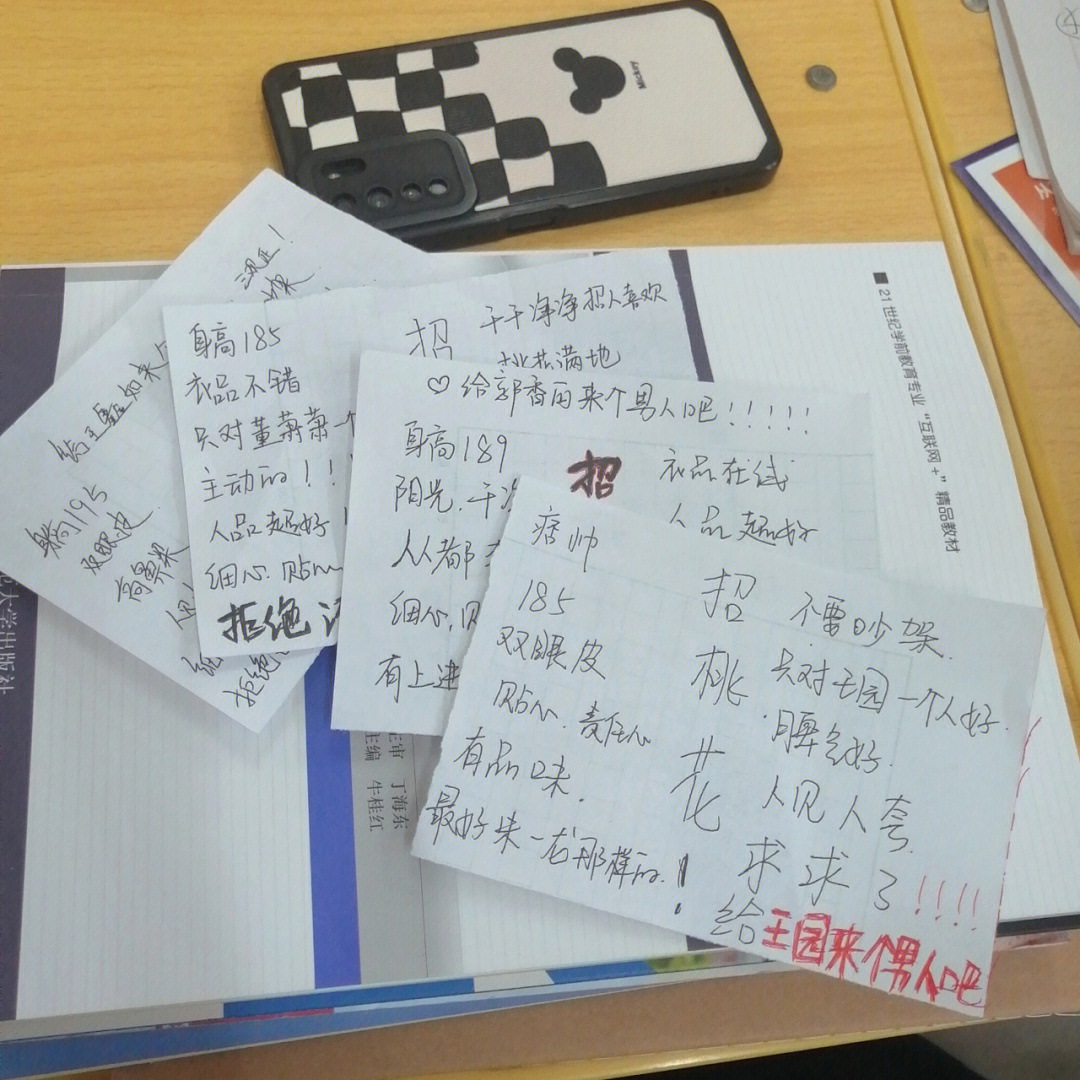 Mickey
21世纪学前教育专业“互联网+”精品教材
三观正!
给王鑫如来
身高195
双眼皮
高鼻梁
拒绝
身高185
衣品不错
只对董萧萧一个
主动的!!
人品超好
细心.贴心
拒绝
招
干干净净招人喜欢
桃花满地
♡给郭香雨来个男人吧!!!!!
身高189
阳光.干净
人人都
细心,贴
有上进
招
衣品在线
人品超好
痞帅
185
双眼皮
贴心.责任心
有品味.
最好朱一龙那样的!
招桃花
不要吵架.
只对王园一个人好.
脾气好.
人见人夸.
求求了!!!!
给王园来个男人吧
主审 丁海东
主编 牛桂红
大学出版社